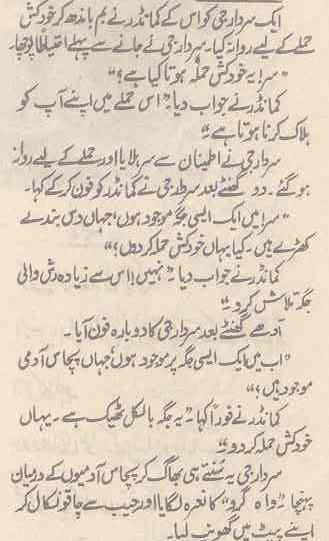 ایک سردار جی کو اس کے کمانڈر نے بم باندھ کر خودکش
حملے کے لیے روانہ کیا۔ سردار جی نے جانے سے پہلے احتیاطاً پوچھا۔
”سر! یہ خودکش حملہ ہوتا کیا ہے؟“
کمانڈر نے جواب دیا ”اس حملے میں اپنے آپ کو
ہلاک کرنا ہوتا ہے۔“
سردار جی نے اطمینان سے سر ہلایا اور حملے کے لیے روانہ
ہو گئے۔ دو گھنٹے بعد سردار جی نے کمانڈر کو فون کر کے کہا۔
”سر! میں ایک ایسی جگہ موجود ہوں، جہاں دس بندے
کھڑے ہیں۔ کیا یہاں خودکش حملہ کر دوں؟“
کمانڈر نے جواب دیا۔ ”نہیں! اس سے زیادہ رش والی
جگہ تلاش کرو۔“
آدھے گھنٹے بعد سردار جی کا دوبارہ فون آیا۔
”اب میں ایک ایسی جگہ پر موجود ہوں، جہاں پچاس آدمی
موجود ہیں؟“
کمانڈر نے فوراً کہا۔ ”یہ جگہ بالکل ٹھیک ہے۔ یہاں
خودکش حملہ کر دو۔“
سردار جی یہ سنتے ہی بھاگ کر پچاس آدمیوں کے درمیان
پہنچا ”واہ گرو“ کا نعرہ لگایا اور جیب سے چاقو نکال کر
اپنے پیٹ میں گھونپ لیا۔